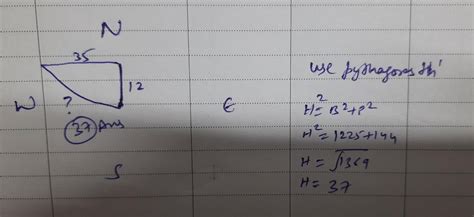 N
35
12
W
?
E
37 Ans
S
use pythagoras th
H² = B² + P²
H² = 1225 + 144
H = √1369
H = 37